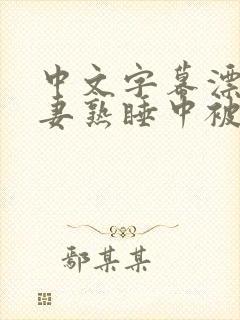 中文字幕漂
妻熟睡中被
鄢某某